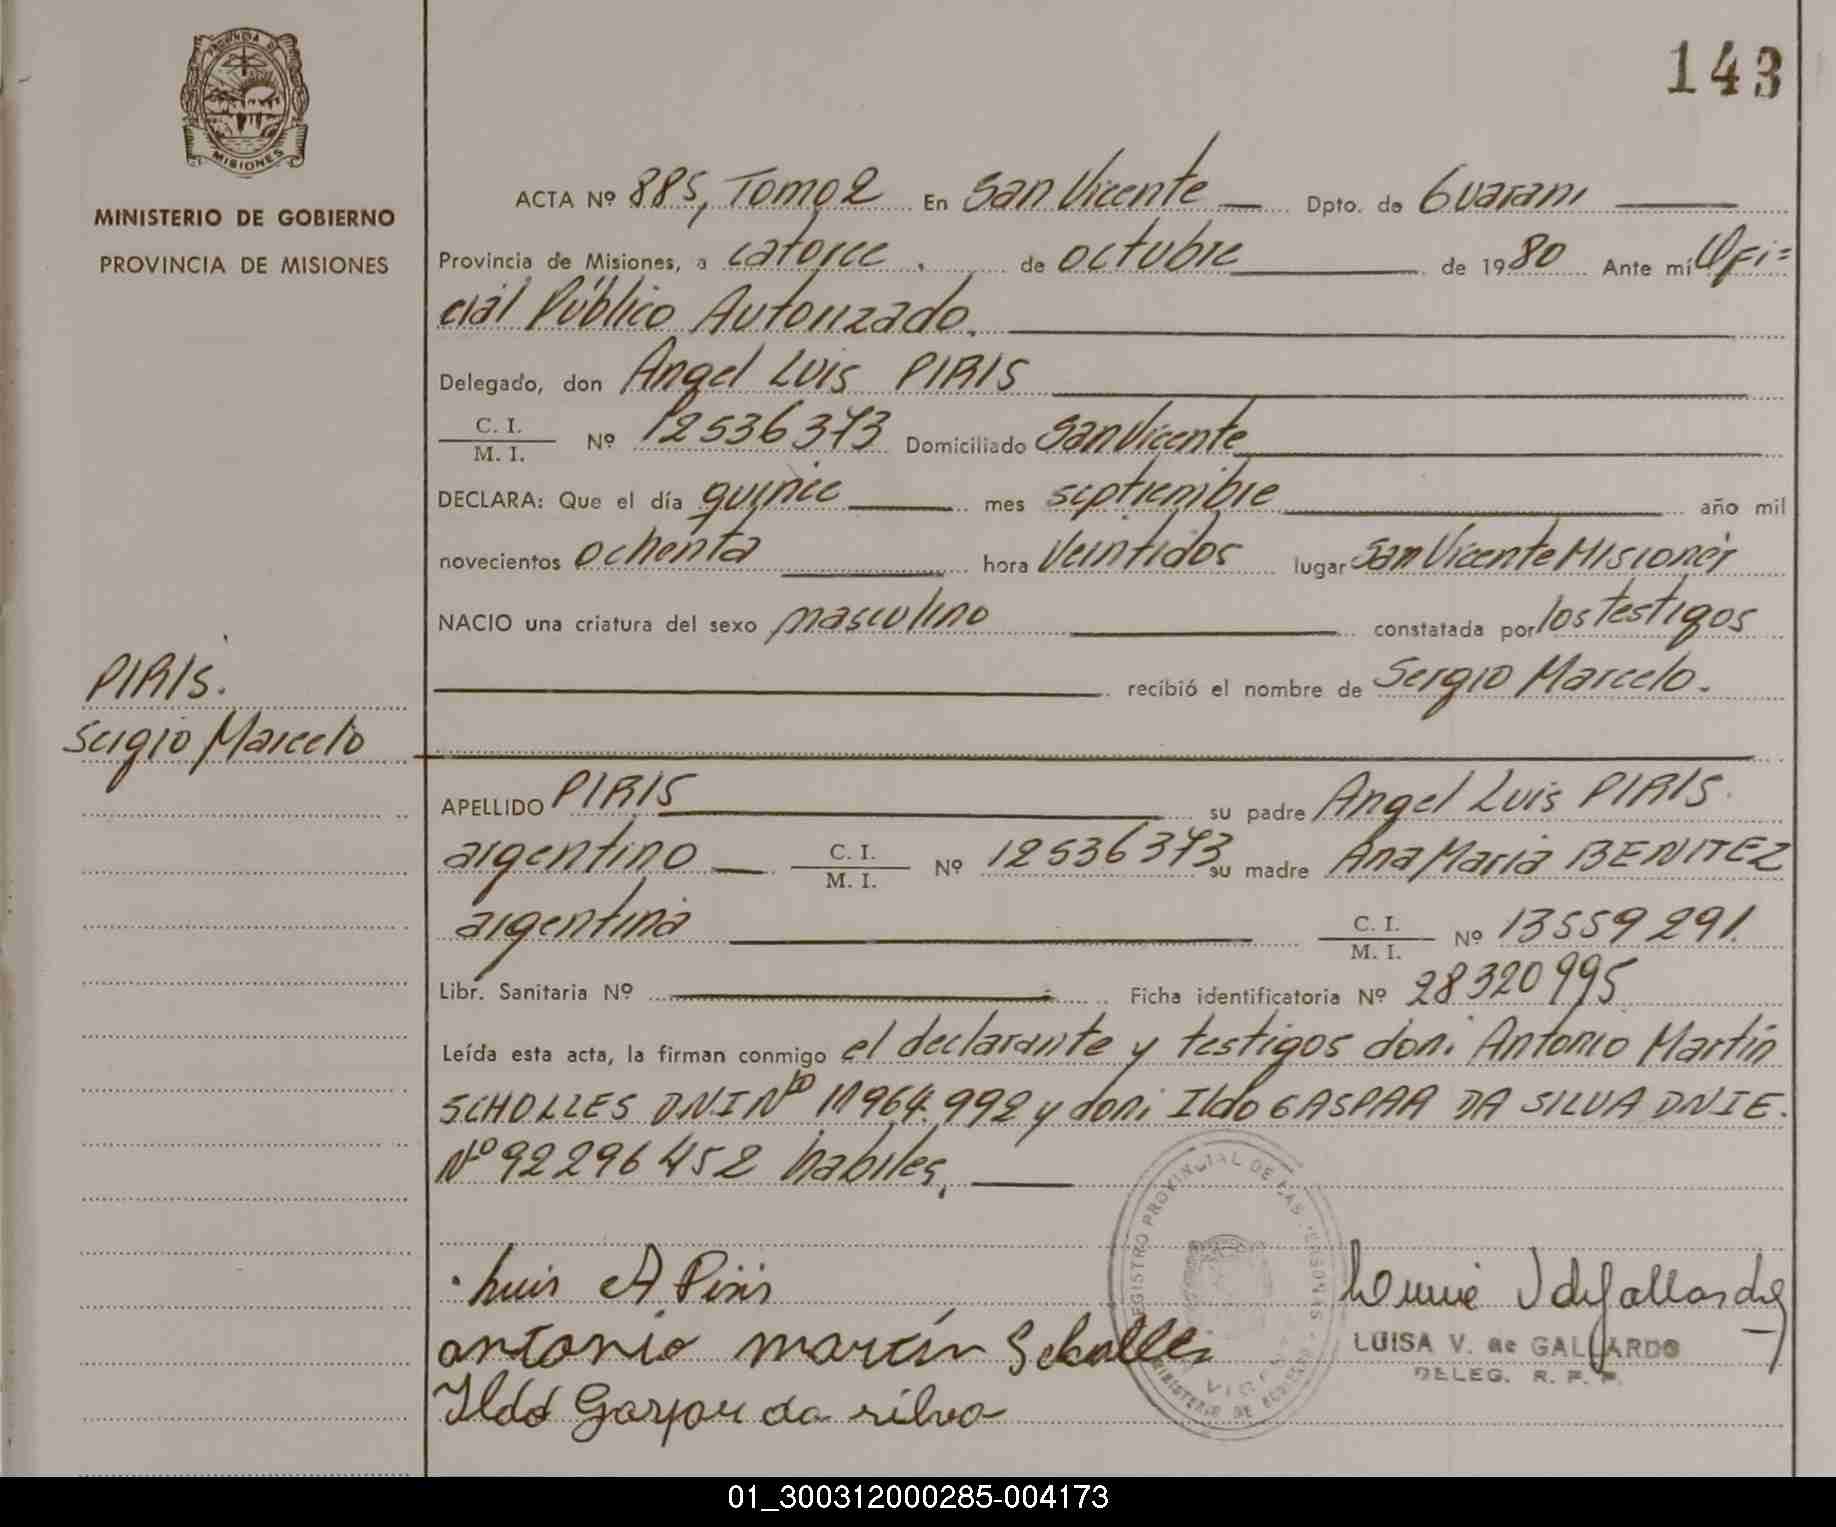 143
PROVINCIA DE
MISIONES
MINISTERIO DE GOBIERNO
PROVINCIA DE MISIONES
ACTA Nº 885, Tomo 2 En San Vicente Dpto. de Guarani
Provincia de Misiones, a catorce de octubre de 1980 Ante mí Ofi=
cial Público Autorizado.
Delegado, don Angel Luis PIRIS
C. I.
M. I. Nº 12536373 Domiciliado San Vicente
DECLARA: Que el día quince mes septiembre año mil
novecientos ochenta hora veintidos lugar San Vicente Misiones
NACIO una criatura del sexo masculino constatada por los testigos
recibió el nombre de Sergio Marcelo.
PIRIS.
Sergio Marcelo
APELLIDO PIRIS su padre Angel Luis PIRIS.
argentino C. I. M. I. Nº 12536373 su madre Ana Maria BENITEZ
argentina C. I. M. I. Nº 13559291.
Libr. Sanitaria Nº Ficha identificatoria Nº 28320995
Leída esta acta, la firman conmigo el declarante y testigos don: Antonio Martin
SCHOLLES DNI Nº 11964.992 y don: Ildo GASPAR DA SILVA DNIE.
Nº 92296452 habiles.
REGISTRO PROVINCIAL DE LAS PERSONAS
MINISTERIO DE GOBIERNO
Luis A Piris
antonio martin Scholles
Ildo Gaspar da silva
LUISA V. de GALLARDO
DELEG. R. P. P.
01_300312000285-004173